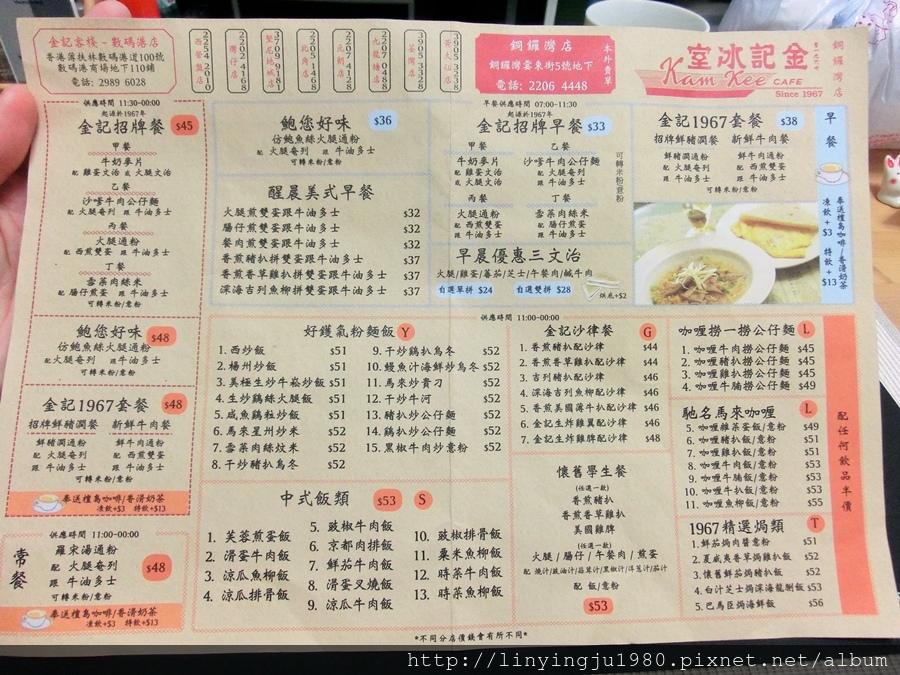 金記客棧－數碼港店
香港薄扶林數碼港道100號
數碼港商場地下110鋪
電話: 2989 6028
西營盤店
2254 2010
灣仔店
2202 4168
堅尼地城店
2209 9981
北角店
2205 1468
元朗店
2470 4428
九龍城店
2207 0848
茶灣店
3905 3298
黃大仙店
3905 3258
銅鑼灣店
銅鑼灣霎東街5號地下
電話: 2206 4448
本外賣單
室冰記金
Kam Kee CAFE
Since 1967
銅鑼灣店
供應時間 11:30-00:00
起源於1967年
金記招牌餐 $45
甲餐
牛奶麥片
配 雞蛋文治 或 火腿文治
乙餐
沙嗲牛肉公仔麵
配 火腿奄列 跟 牛油多士
丙餐
火腿通粉
配 西煎雙蛋 跟 牛油多士
丁餐
雪菜肉絲米
配 腸仔煎蛋 跟 牛油多士
可轉米粉/意粉
鮑您好味 $48
仿鮑魚絲火腿通粉
配火腿奄列 跟牛油多士
可轉米粉/意粉
金記1967套餐 $48
招牌鮮豬潤餐 新鮮牛肉餐
鮮豬潤通粉 鮮牛肉通粉
配 火腿奄列 配 西煎雙蛋
跟 牛油多士 跟 牛油多士
可轉米粉/意粉
奉送檀島咖啡/香滑奶茶
凍飲+$3 特飲+$13
供應時間 11:00-00:00
常餐
羅宋湯通粉
配 火腿奄列
跟 牛油多士
可轉米粉/意粉
$48
奉送檀島咖啡/香滑奶茶
凍飲+$3 特飲+$13
鮑您好味 $36
仿鮑魚絲火腿通粉
配 火腿奄列 跟 牛油多士
可轉米粉/意粉
醒晨美式早餐
火腿煎雙蛋跟牛油多士 $32
腸仔煎雙蛋跟牛油多士 $32
餐肉煎雙蛋跟牛油多士 $32
香煎豬扒拼雙蛋跟牛油多士 $37
香煎香草雞扒拼雙蛋跟牛油多士 $37
深海吉列魚柳拼雙蛋跟牛油多士 $37
早餐供應時間 07:00-11:30
起源於1967年
金記招牌早餐 $33
甲餐 乙餐
牛奶麥片 沙嗲牛肉公仔麵
配 雞蛋文治 配 火腿奄列
或 火腿文治 跟 牛油多士
丙餐 丁餐
火腿通粉 雪菜肉絲米
配 西煎雙蛋 配 腸仔煎蛋
跟 牛油多士 跟 牛油多士
可轉米粉意粉
早晨優惠三文治
火腿/雞蛋/蕃茄/芝士/午餐肉/鹹牛肉
自選單拼 $24 自選雙拼 $28 烘底+$2
金記1967套餐 $38
招牌鮮豬潤餐 新鮮牛肉餐
鮮豬潤通粉 鮮牛肉通粉
配 火腿奄列 配 西煎雙蛋
跟 牛油多士 跟 牛油多士
可轉米粉/意粉
早餐
奉送檀島咖啡/香滑奶茶
凍飲+$3 特飲+$13
供應時間 11:00-00:00
好鑊氣粉麵飯 Y
1. 西炒飯 $51
2. 楊州炒飯 $51
3. 美極生炒牛崧炒飯 $51
4. 生炒鷄絲火腿飯 $51
5. 咸魚鷄粒炒飯 $51
6. 馬來星州炒米 $52
7. 雪菜肉絲炆米 $52
8. 干炒豬扒烏冬 $52
9. 干炒鷄扒烏冬 $52
10. 鰻魚汁海鮮炒烏冬 $52
11. 馬來炒貴刁 $52
12. 干炒牛河 $52
13. 豬扒炒公仔麵 $52
14. 鷄扒炒公仔麵 $52
15. 黑椒牛肉炒意粉 $52
中式飯類 $53 S
1. 芙蓉煎蛋飯
2. 滑蛋牛肉飯
3. 涼瓜魚柳飯
4. 涼瓜排骨飯
5. 豉椒牛肉飯
6. 京都肉排飯
7. 鮮茄牛肉飯
8. 滑蛋叉燒飯
9. 涼瓜牛肉飯
10. 豉椒排骨飯
11. 粟米魚柳飯
12. 時菜牛肉飯
13. 時菜魚柳飯
金記沙律餐 G
1. 香煎豬扒配沙律 $44
2. 香煎香草雞扒配沙律 $44
3. 吉列豬扒配沙律 $46
4. 深海吉列魚柳配沙律 $46
5. 香煎美國薄牛扒配沙律 $46
6. 金記生炸雞翼配沙律 $46
7. 金記生炸雞脾配沙律 $48
懷舊學生餐
(任選一款)
香煎豬扒
香煎香草雞扒
美國雞脾
(任選一款)
火腿/腸仔/午餐肉/煎蛋
配 燒汁/豉油汁/蒜茸汁/黑椒汁/洋蔥汁/茄汁
配 飯/意粉
$53
咖喱撈一撈公仔麵 L
1. 咖喱牛肉撈公仔麵 $45
2. 咖喱豬扒撈公仔麵 $45
3. 咖喱雞扒撈公仔麵 $45
4. 咖喱牛腩撈公仔麵 $49
馳名馬來咖喱 L
5. 咖喱雜菜蛋飯/意粉 $49
6. 咖喱豬扒飯/意粉 $51
7. 咖喱雞扒飯/意粉 $53
8. 咖喱牛肉飯/意粉 $53
9. 咖喱牛腩飯/意粉 $53
10. 咖喱牛扒飯/意粉 $53
11. 咖喱魚柳飯/意粉 $55
1967精選焗類 T
1. 鮮茄焗肉醬意粉 $51
2. 夏威夷香草焗雞扒飯 $52
3. 懷舊鮮茄焗豬扒飯 $52
4. 白汁芝士焗深海龍脷飯 $53
5. 巴馬臣焗海鮮飯 $56
配任何飲品半價
*不同分店價錢會有所不同*
http://linyingju1980.pixnet.net/album